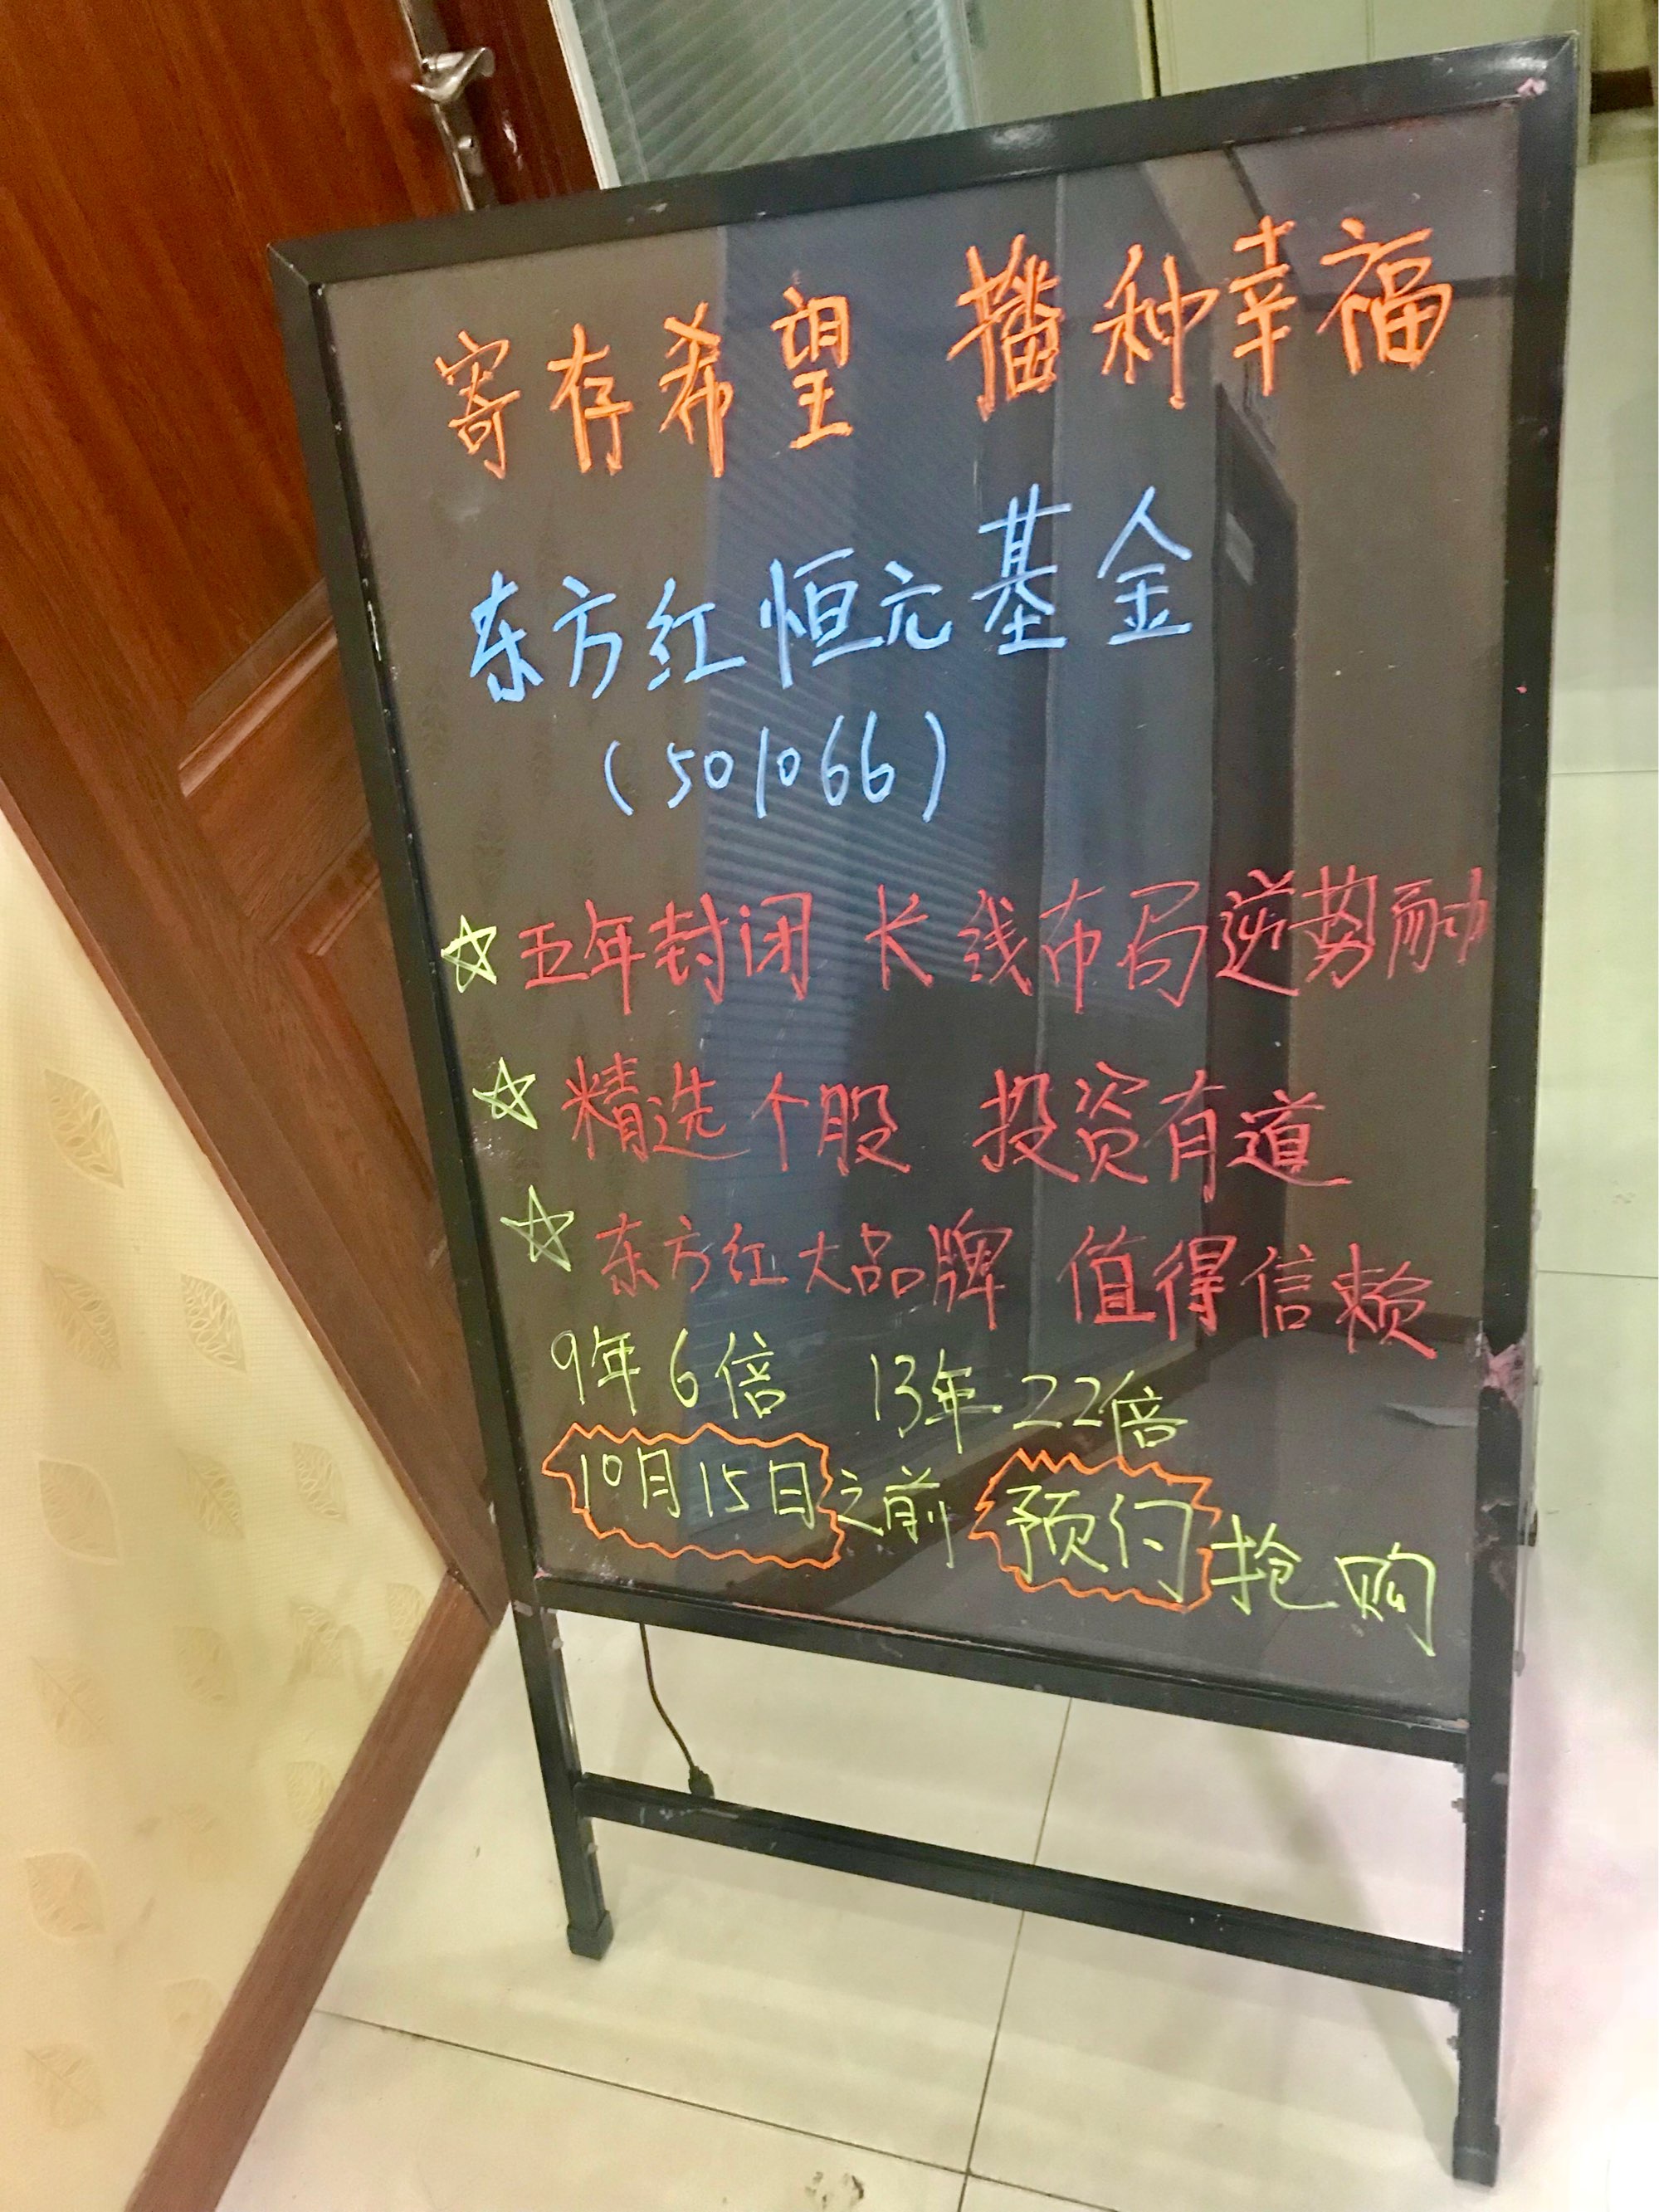 寄存希望 播种幸福
东方红恒元基金
(501066)
☆五年封闭 长线布局逆势而动
☆精选个股 投资有道
☆东方红大品牌 值得信赖
9年6倍 13年22倍
10月15日之前 预约抢购